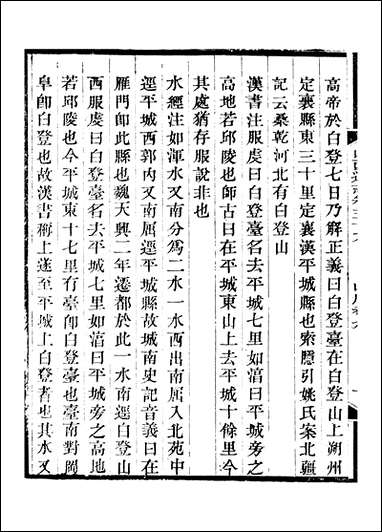 高帝於白登七日乃解正義曰白登臺在白登山上朔州
定襄縣東三十里定襄漢平城縣也索隱引姚氏案北疆
記云桑乾河北有白登山
漢書注服虔曰白登臺名去平城七里如淳曰平城旁之
高地若邱陵也師古曰在平城東山上去平城十餘里今
其處猶存服說非也
水經注如渾水又南分爲二水一水西出南屈入北苑中
逕平城西郭內又南屈逕平城縣故城南史記音義曰在
雁門卽此縣也魏天興二年遷都於此一水南逕白登山
西服虔曰白登臺名去平城七里如淳曰平城旁之高地
若邱陵也今平城東十七里有臺卽白登臺也臺南對岡
阜卽白登也故漢書稱上遂至平城上白登者也其水又